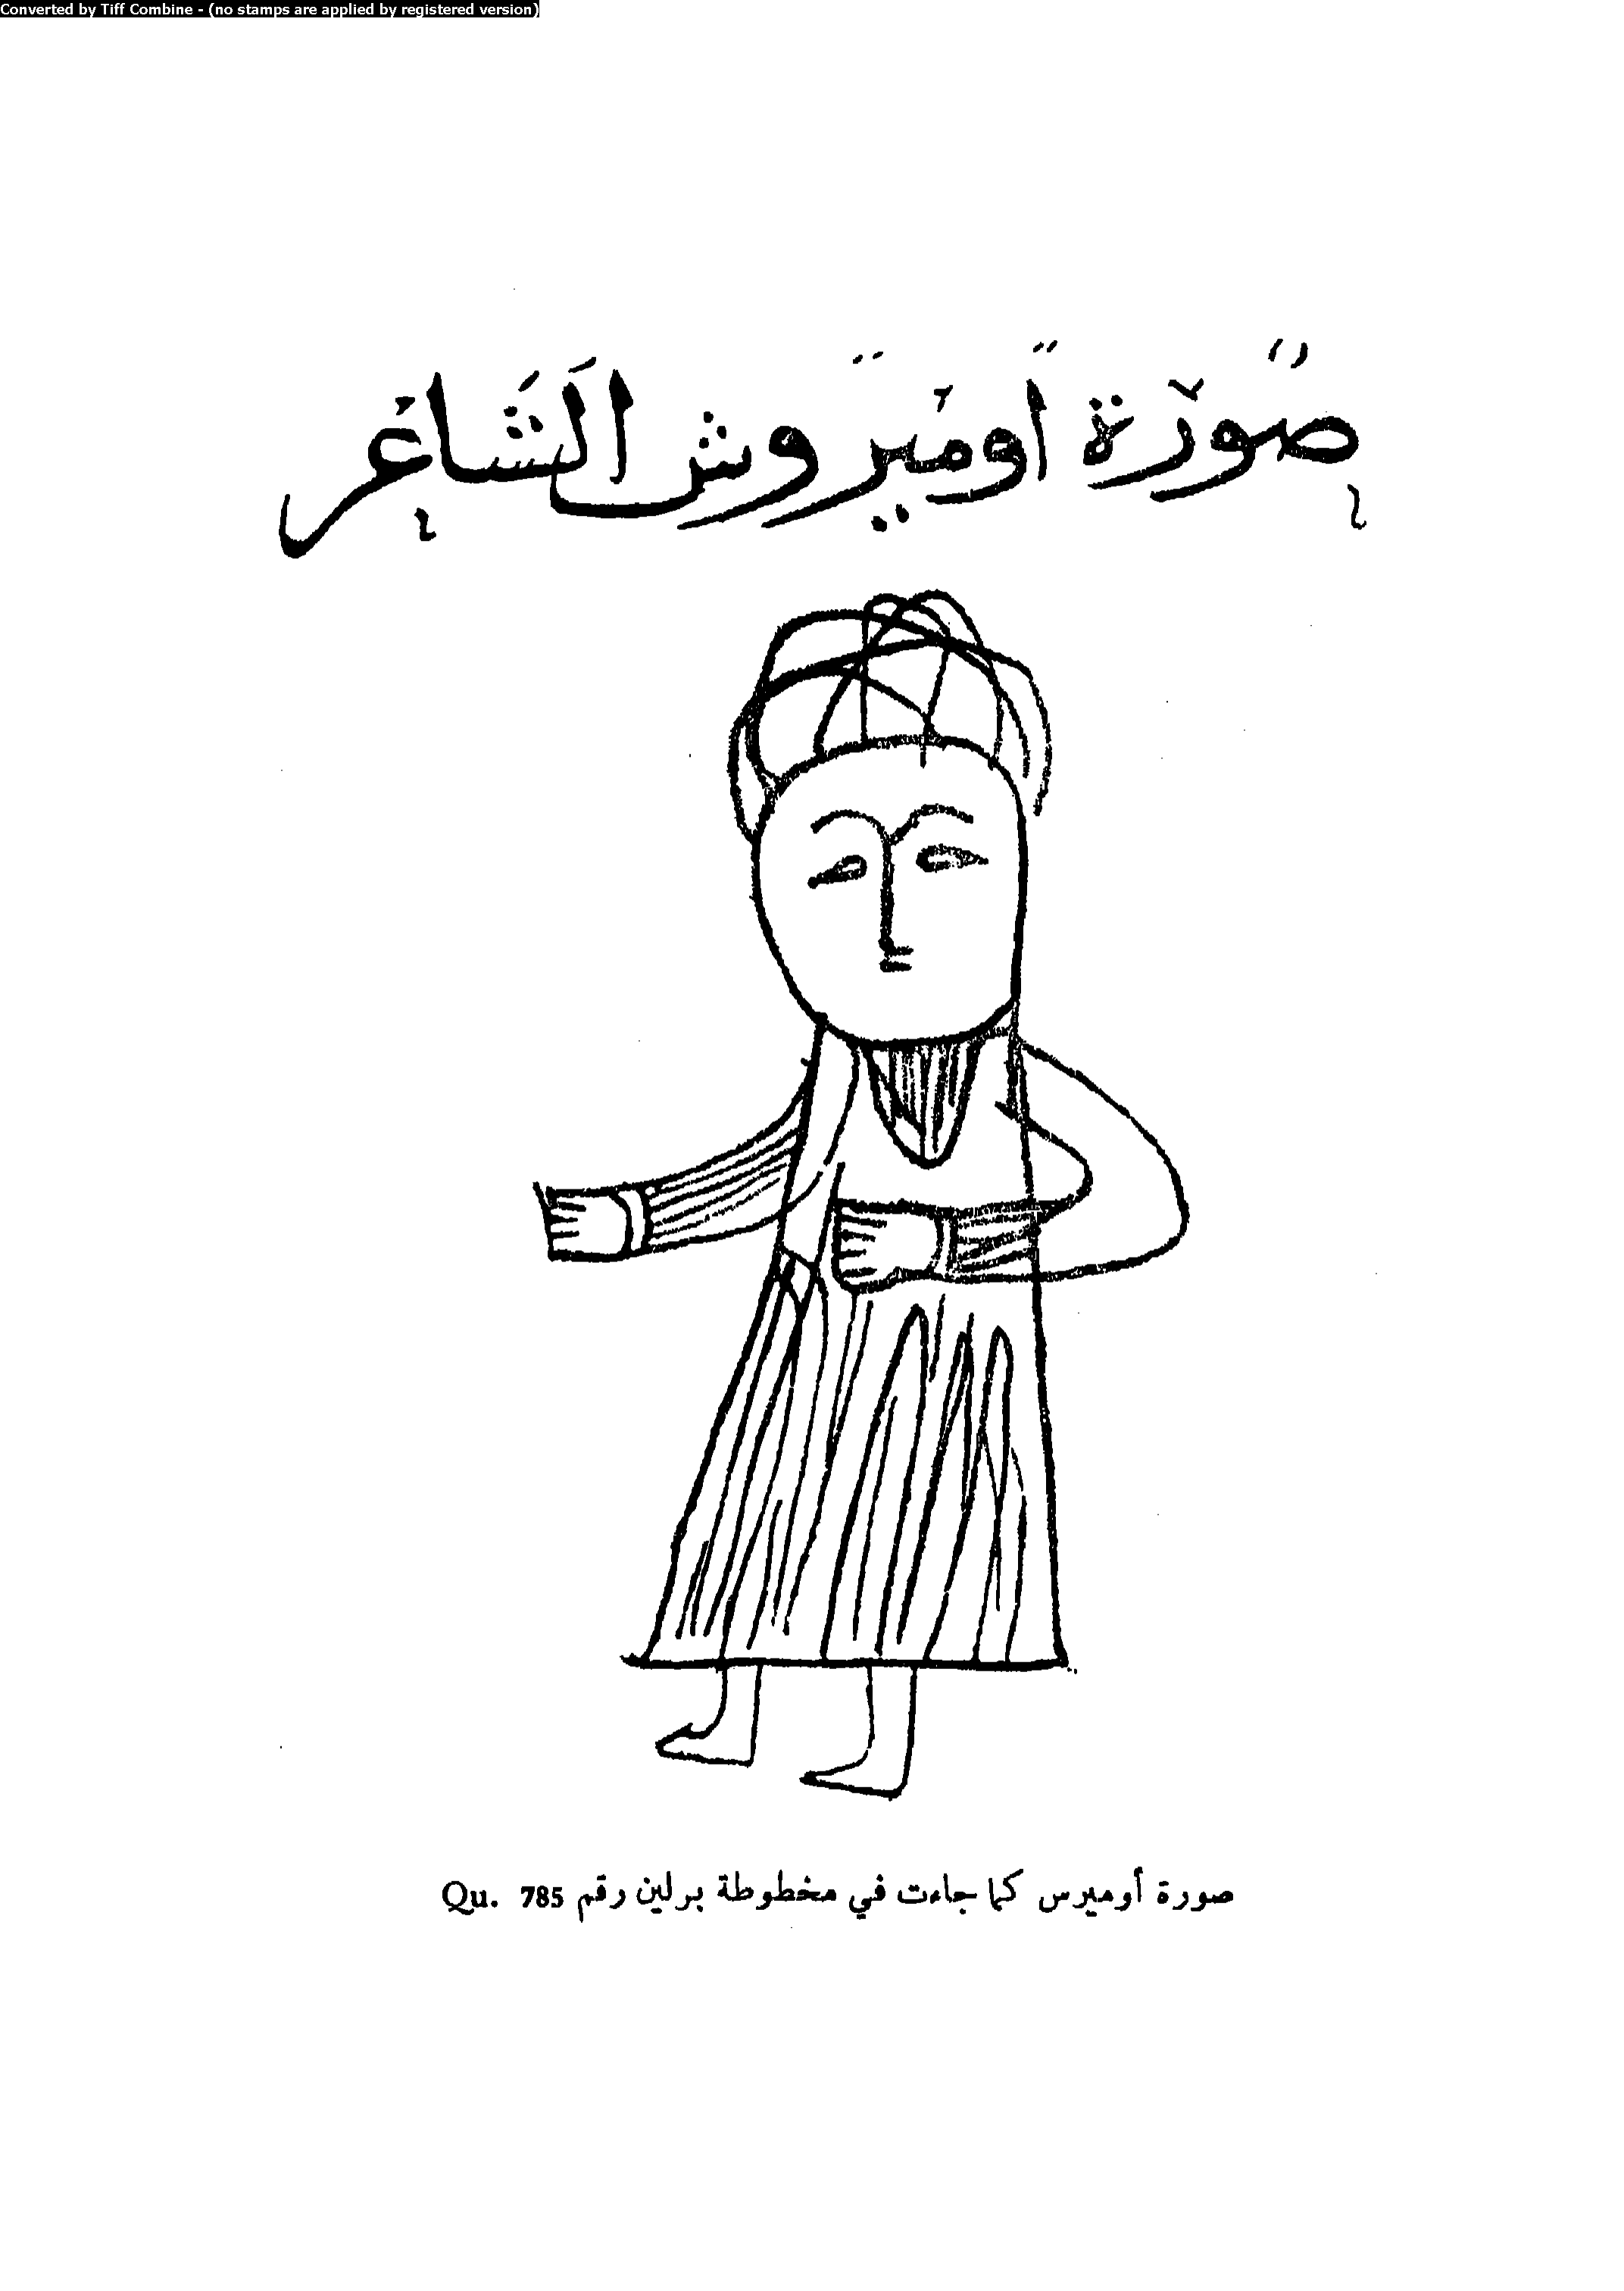 Converted by Tiff Combine - (no stamps are applied by registered version)
صورة اوميروش الشاعر
صورة أوميرس كما جاءت في مخطوطة برلين رقم Qu. 785